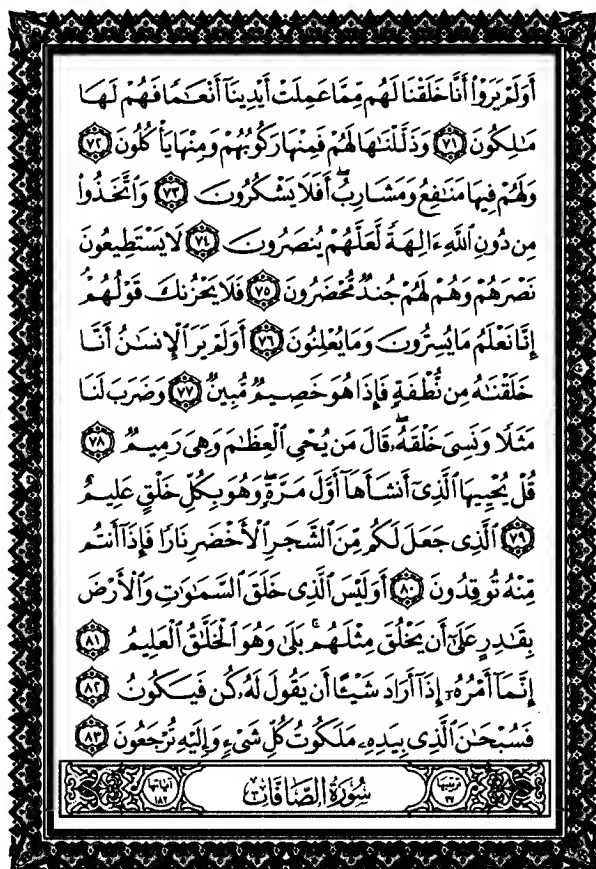 أَوَلَمْ يَرَوْا۟ أَنَّا خَلَقْنَا لَهُم مِّمَّا عَمِلَتْ أَيْدِينَآ أَنْعَٰمًا فَهُمْ لَهَا
مَٰلِكُونَ ٧١ وَذَلَّلْنَٰهَا لَهُمْ فَمِنْهَا رَكُوبُهُمْ وَمِنْهَا يَأْكُلُونَ ٧٢
وَلَهُمْ فِيهَا مَنَٰفِعُ وَمَشَارِبُ ۖ أَفَلَا يَشْكُرُونَ ٧٣ وَٱتَّخَذُوا۟
مِن دُونِ ٱللَّهِ ءَالِهَةً لَّعَلَّهُمْ يُنصَرُونَ ٧٤ لَا يَسْتَطِيعُونَ
نَصْرَهُمْ وَهُمْ لَهُمْ جُندٌ مُّحْضَرُونَ ٧٥ فَلَا يَحْزُنكَ قَوْلُهُمْ
إِنَّا نَعْلَمُ مَا يُسِرُّونَ وَمَا يُعْلِنُونَ ٧٦ أَوَلَمْ يَرَ ٱلْإِنسَٰنُ أَنَّا
خَلَقْنَٰهُ مِن نُّطْفَةٍ فَإِذَا هُوَ خَصِيمٌ مُّبِينٌ ٧٧ وَضَرَبَ لَنَا
مَثَلًا وَنَسِىَ خَلْقَهُۥ ۖ قَالَ مَن يُحْىِ ٱلْعِظَٰمَ وَهِىَ رَمِيمٌ ٧٨
قُلْ يُحْيِيهَا ٱلَّذِىٓ أَنشَأَهَآ أَوَّلَ مَرَّةٍ ۖ وَهُوَ بِكُلِّ خَلْقٍ عَلِيمٌ
٧٩ ٱلَّذِى جَعَلَ لَكُم مِّنَ ٱلشَّجَرِ ٱلْأَخْضَرِ نَارًا فَإِذَآ أَنتُم
مِّنْهُ تُوقِدُونَ ٨٠ أَوَلَيْسَ ٱلَّذِى خَلَقَ ٱلسَّمَٰوَٰتِ وَٱلْأَرْضَ
بِقَٰدِرٍ عَلَىٰٓ أَن يَخْلُقَ مِثْلَهُم ۚ بَلَىٰ وَهُوَ ٱلْخَلَّٰقُ ٱلْعَلِيمُ ٨١
إِنَّمَآ أَمْرُهُۥٓ إِذَآ أَرَادَ شَيْـًٔا أَن يَقُولَ لَهُۥ كُن فَيَكُونُ ٨٢
فَسُبْحَٰنَ ٱلَّذِى بِيَدِهِۦ مَلَكُوتُ كُلِّ شَىْءٍ وَإِلَيْهِ تُرْجَعُونَ ٨٣
ترتيبها ٣٧ سُورَةُ الصَّافَّاتِ آياتها ١٨٢